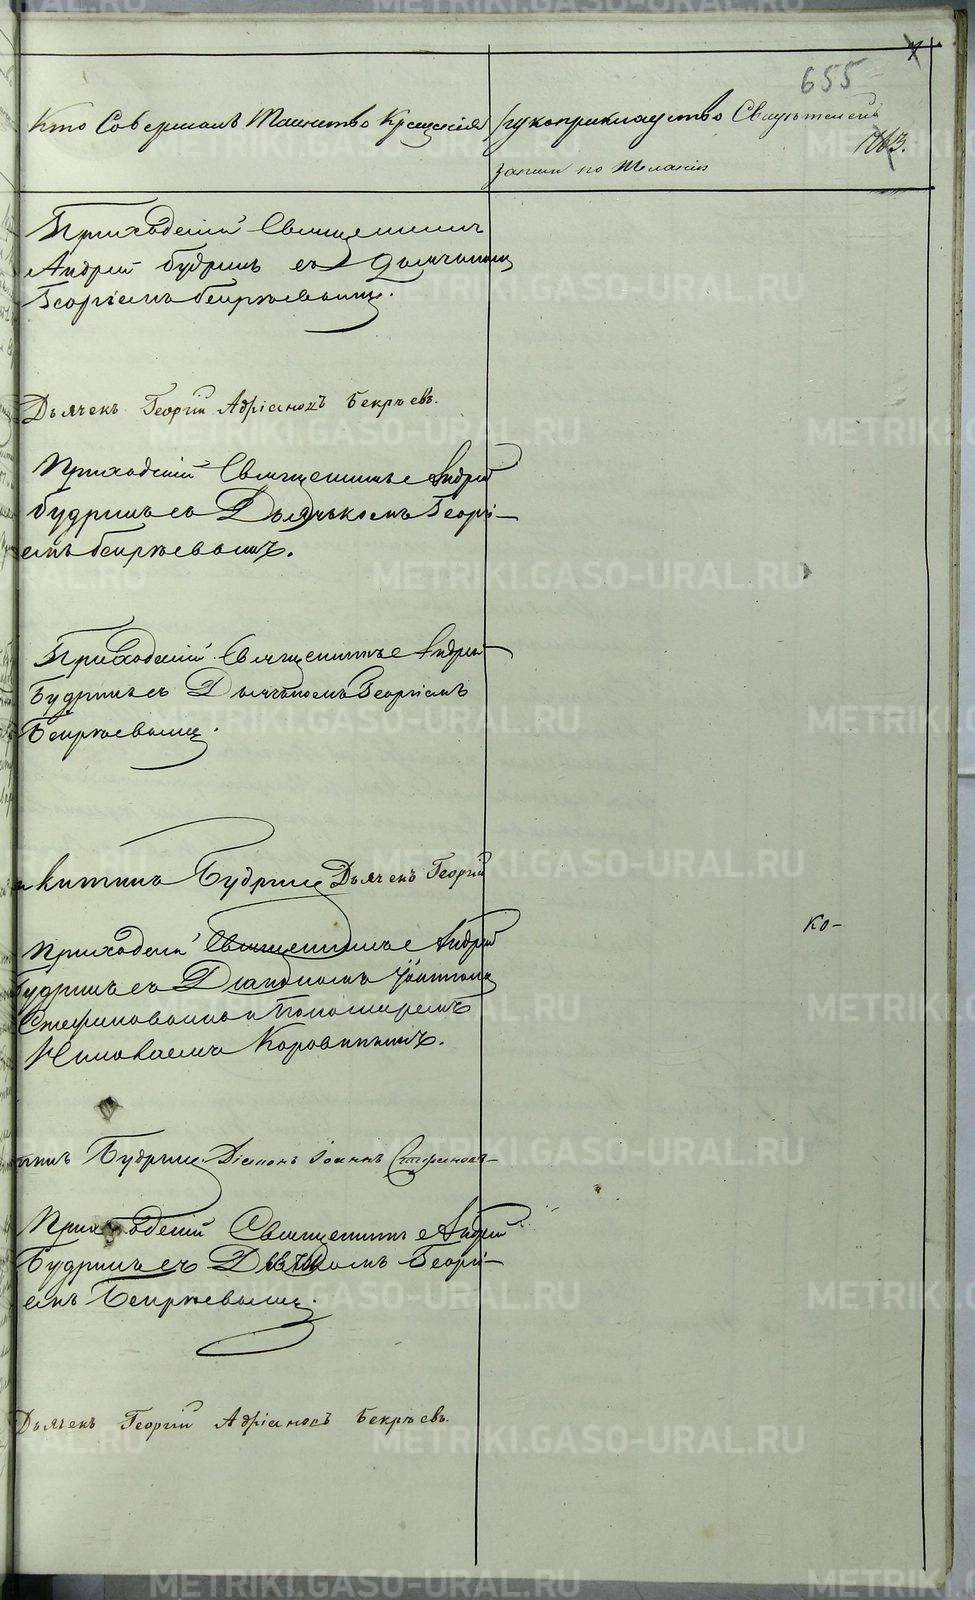 655
Кто Совершалъ Таинство Крещенія
Рукоприкладство Свидѣтелей
1763.
записи по Желанію
Приходскій Священникъ
Андрей Будринъ съ Дьячкомъ
Георгіемъ Бекряевымъ.
Дьячекъ Георгій Адріановъ Бекряевъ.
Приходскій Священникъ Андрей
Будринъ съ Дьячькомъ Георгі-
емъ Бекряевымъ.
Приходскій Священникъ Андрей
Будринъ съ Дьячькомъ Георгіемъ
Бекряевымъ.
Будринъ Дьячекъ Георгій
ко-
Приходскій Священникъ Андрей
Будринъ съ Діакономъ Іоанномъ
Стефановымъ и Пономаремъ
Николаемъ Коровинымъ.
Будринъ. Діаконъ Іоаннъ Стефановъ
Приходскій Священникъ Андрей
Будринъ съ Дьячкомъ Георгі-
емъ Бекряевымъ.
Дьячекъ Георгій Адріановъ Бекряевъ.
METRIKI.GASO-URAL.RU